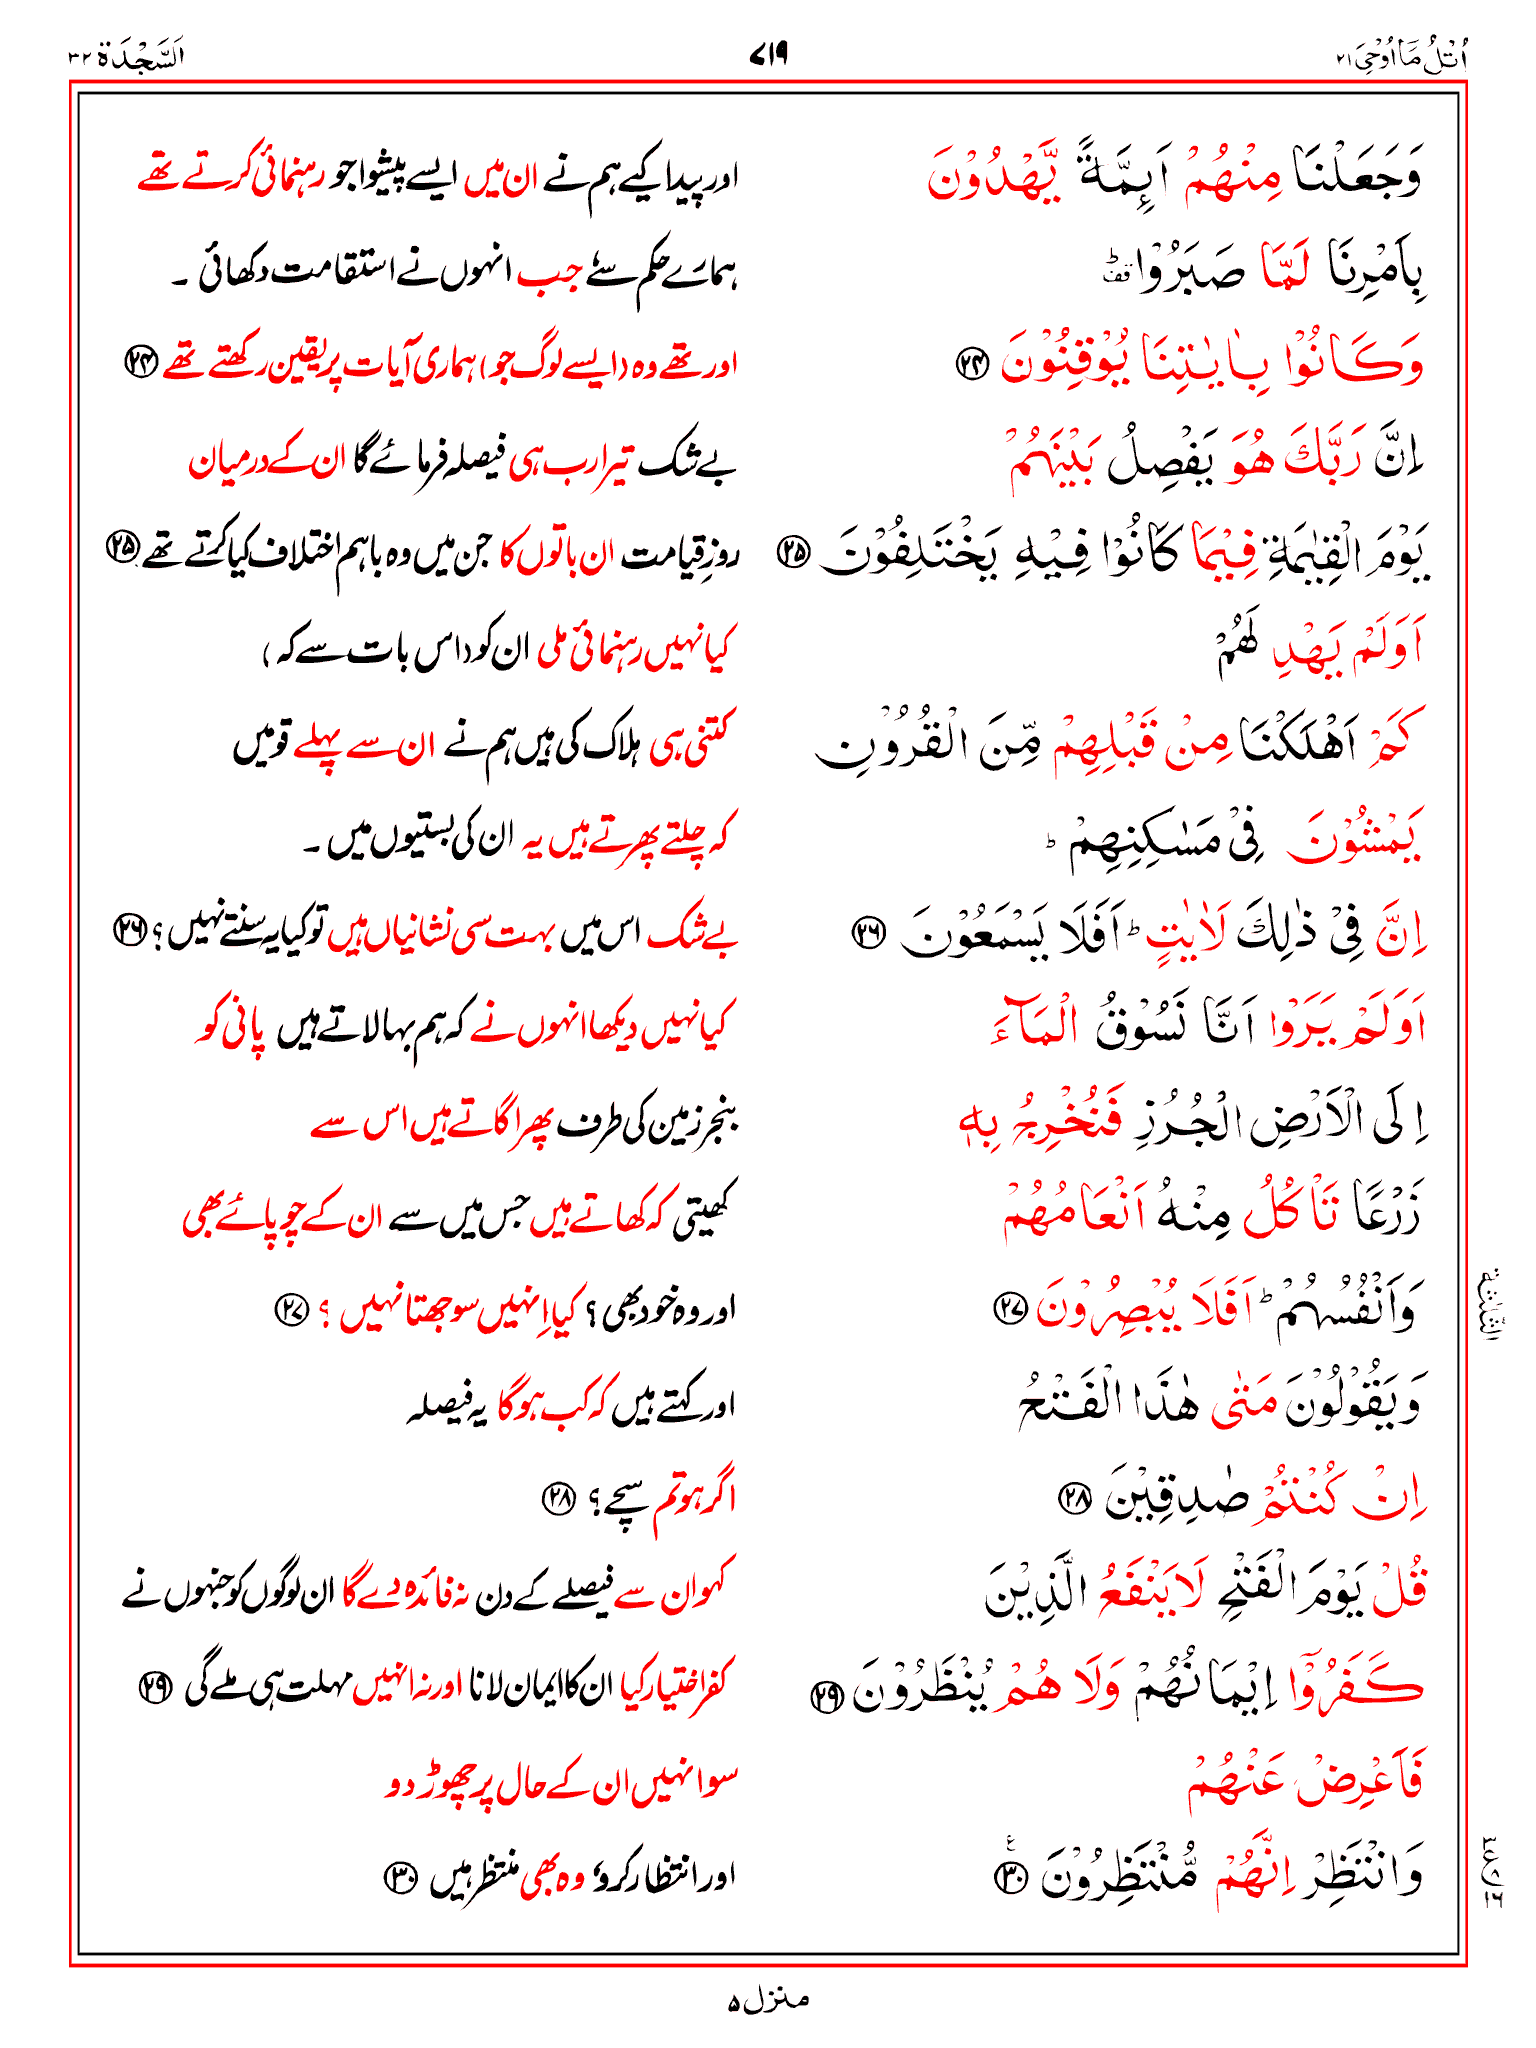 اُتْلُ مَآ اُوْحِیَ ۲۱
۷۱۹
اَلسَّجْدَة ۳۲
وَجَعَلْنَا مِنْهُمْ اَئِمَّةً یَّهْدُوْنَ اور پیدا کیے ہم نے ان میں ایسے پیشوا جو رہنمائی کرتے تھے
بِاَمْرِنَا لَمَّا صَبَرُوْا ؕ قف ہمارے حکم سے، جب انہوں نے استقامت دکھائی ۔
وَكَانُوْا بِاٰیٰتِنَا یُوْقِنُوْنَ ﴿۲۴﴾ اور تھے وہ (ایسے لوگ جو) ہماری آیات پر یقین رکھتے تھے ﴿۲۴﴾
اِنَّ رَبَّكَ هُوَ یَفْصِلُ بَیْنَهُمْ بے شک تیرا رب ہی فیصلہ فرمائے گا ان کے درمیان
یَوْمَ الْقِیٰمَةِ فِیْمَا كَانُوْا فِیْهِ یَخْتَلِفُوْنَ ﴿۲۵﴾ روزِ قیامت ان باتوں کا جن میں وہ باہم اختلاف کیا کرتے تھے ﴿۲۵﴾
اَوَلَمْ یَهْدِ لَهُمْ کیا نہیں رہنمائی ملی ان کو (اس بات سے کہ )
كَمْ اَهْلَكْنَا مِنْ قَبْلِهِمْ مِّنَ الْقُرُوْنِ کتنی ہی ہلاک کی ہیں ہم نے ان سے پہلے قومیں
یَمْشُوْنَ فِیْ مَسٰكِنِهِمْ ؕ کہ چلتے پھرتے ہیں یہ ان کی بستیوں میں ۔
اِنَّ فِیْ ذٰلِكَ لَاٰیٰتٍ ؕ اَفَلَا یَسْمَعُوْنَ ﴿۲۶﴾ بے شک اس میں بہت سی نشانیاں ہیں تو کیا یہ سنتے نہیں؟ ﴿۲۶﴾
اَوَلَمْ یَرَوْا اَنَّا نَسُوْقُ الْمَآءَ کیا نہیں دیکھا انہوں نے کہ ہم بہا لاتے ہیں پانی کو
اِلَی الْاَرْضِ الْجُرُزِ فَنُخْرِجُ بِهٖ بنجر زمین کی طرف پھر اگاتے ہیں اس سے
زَرْعًا تَاْكُلُ مِنْهُ اَنْعَامُهُمْ کھیتی کہ کھاتے ہیں جس میں سے ان کے چوپائے بھی
وَاَنْفُسُهُمْ ؕ اَفَلَا یُبْصِرُوْنَ ﴿۲۷﴾ اور وہ خود بھی؟ کیا اِنہیں سوجھتا نہیں ؟ ﴿۲۷﴾
الثلٰثة
وَیَقُوْلُوْنَ مَتٰی هٰذَا الْفَتْحُ اور کہتے ہیں کہ کب ہوگا یہ فیصلہ
اِنْ كُنْتُمْ صٰدِقِیْنَ ﴿۲۸﴾ اگر ہو تم سچے؟ ﴿۲۸﴾
قُلْ یَوْمَ الْفَتْحِ لَا یَنْفَعُ الَّذِیْنَ کہو ان سے فیصلے کے دن نہ فائدہ دے گا ان لوگوں کو جنہوں نے
كَفَرُوْۤا اِیْمَانُهُمْ وَلَا هُمْ یُنْظَرُوْنَ ﴿۲۹﴾ کفر اختیار کیا ان کا ایمان لانا اور نہ انہیں مہلت ہی ملے گی ﴿۲۹﴾
فَاَعْرِضْ عَنْهُمْ سو انہیں ان کے حال پر چھوڑ دو
وَانْتَظِرْ اِنَّهُمْ مُّنْتَظِرُوْنَ ﴿۳۰﴾ ع اور انتظار کرو، وہ بھی منتظر ہیں ﴿۳۰﴾
۳ ع ۸ ۱۶
منزل ۵